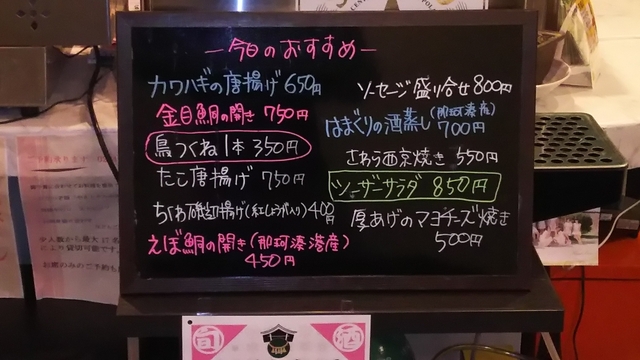 今日のおすすめ
カワハギの唐揚げ 650円
金目鯛の開き 750円
鳥つくね1本 350円
たこ唐揚げ 750円
ちくわ磯辺揚げ(紅しょうが入り) 400円
えぼ鯛の開き(那珂湊港産)
450円
ソーセージ盛り合せ 800円
はまぐりの酒蒸し(那珂湊産)
700円
さわら西京焼き 550円
シーザーサラダ 850円
厚あげのマヨチーズ焼き
500円
旬
酒